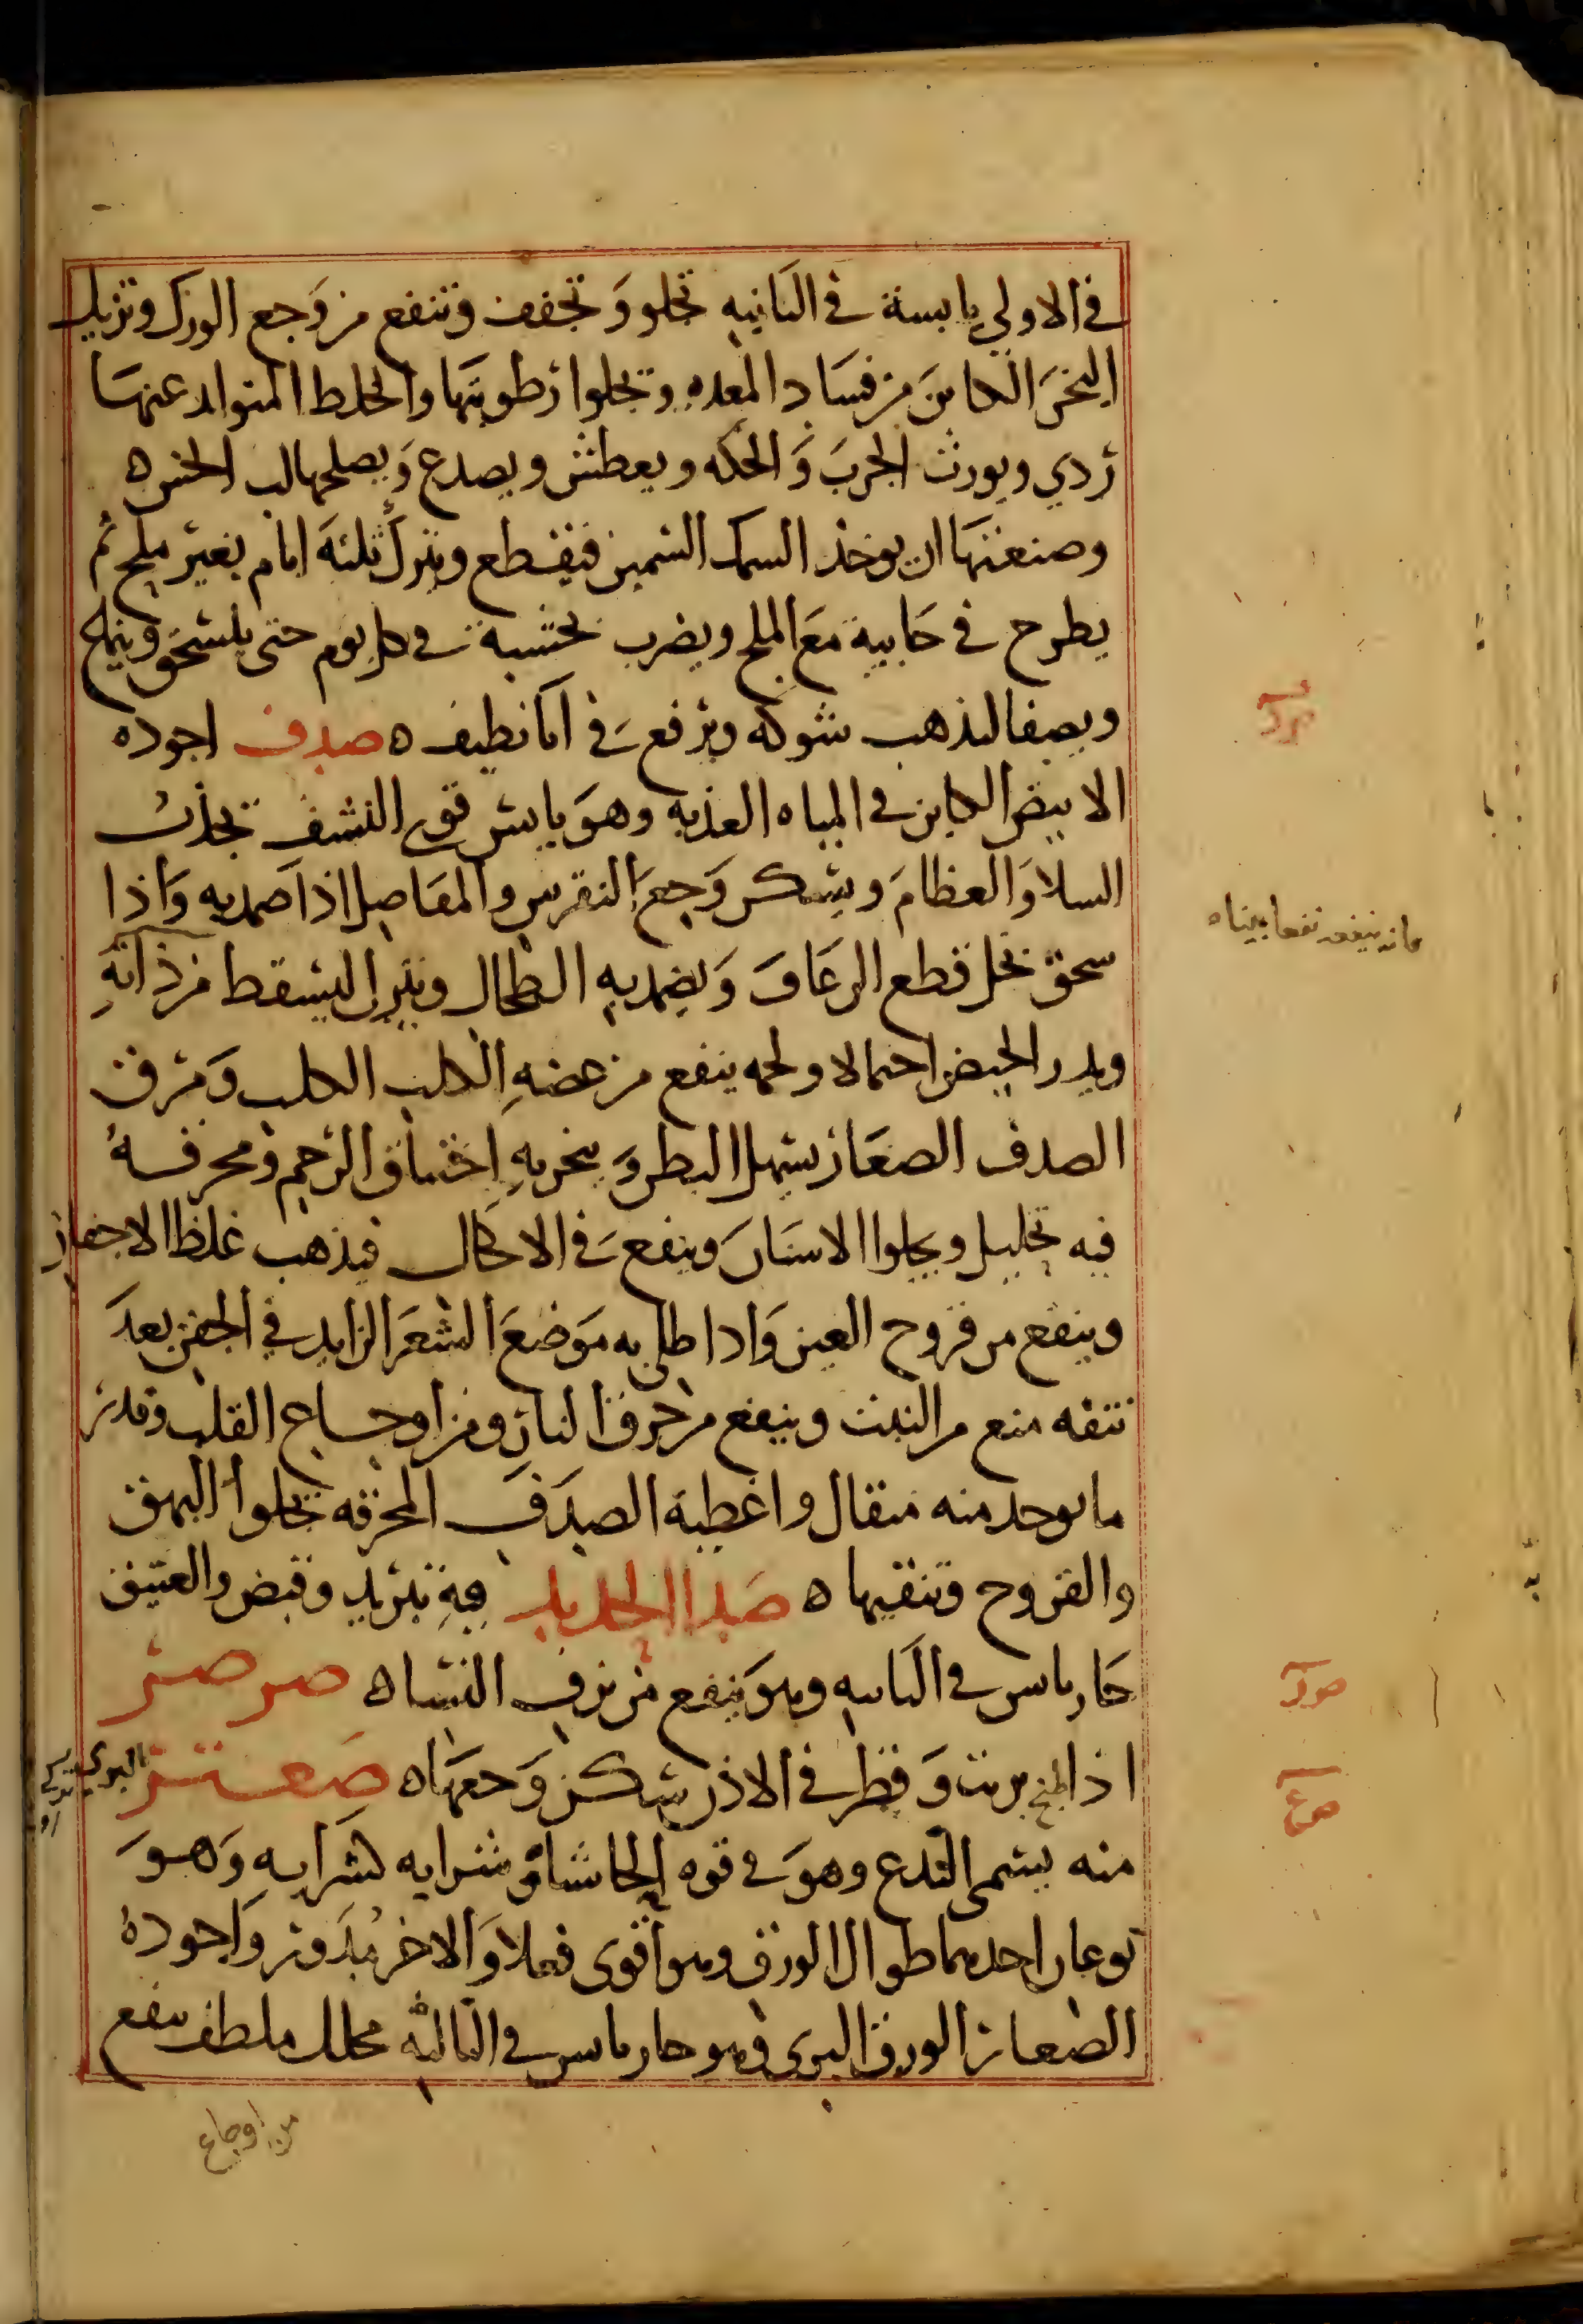 في الاولي يابسة في الثانيه تجلو وتجفف وتنفع من وجع الورك وتزيل
البخر الكاين من فساد المعده وتجلوا رطوبتها والخلط المتولد عنها
ردي ويورث الجرب والحكه ويعطش ويصدع ويصلحها لب الخس ه
وصنعتها ان يوخذ السمك السمين فيقطع ويترك ثلثة ايام بغير ملح ثم
يطرح في خابية مع الملح ويضرب بخشبة في كل يوم حتى ينسحق وينماع
ويصفا ليذهب شوكه ويرفع في انا نظيف ه صدف اجوده
الابيض الكاين في المياه العذبه وهو يابس قوي النشف يجذب
السلا والعظام ويسكن وجع النقرس والمفاصل اذا ضمد به واذا
سحق بخل قطع الرعاف ويضمد به الطحال ويترك ليسقط من ذاته
ويدر الحيض احتمالا ولحمه ينفع من عضه الكلب الكلب ومرق
الصدف الصغار يسهل البطن ويبخر به اختناق الرحم ومحرقه
فيه تحليل ويجلوا الاسنان وينفع في الاكحال فيذهب غلظ الاجفان
وينفع من قروح العين واذا طلي به موضع الشعر الزايد في الجفن بعد
نتفه منع من النبت وينفع من حرق النار ومن اوجاع القلب وقدر
ما يوخذ منه مثقال واغطية الصدف المحرقه تجلوا البهق
والقروح وتنقيها ه صدا الحديد فيه تبريد وقبض والعتيق
حار يابس في الثانيه وهو ينفع من نزف النساه صرصر
اذا طبخ بزيت وقطر في الاذن يسكن وجعها ه صعتر البري
منه يسمى الندغ وهو في قوه الحاشا وشرابه كشرابه وهو
نوعان احدهما طوال الورق وهو اقوى فعلا والاخر مدور واجوده
الصغار الورق البري وهو حار يابس في الثالثه محلل ملطف ينفع
من اوجاع
صد
فانه ينفعه نفعا بيناه
صر
صع